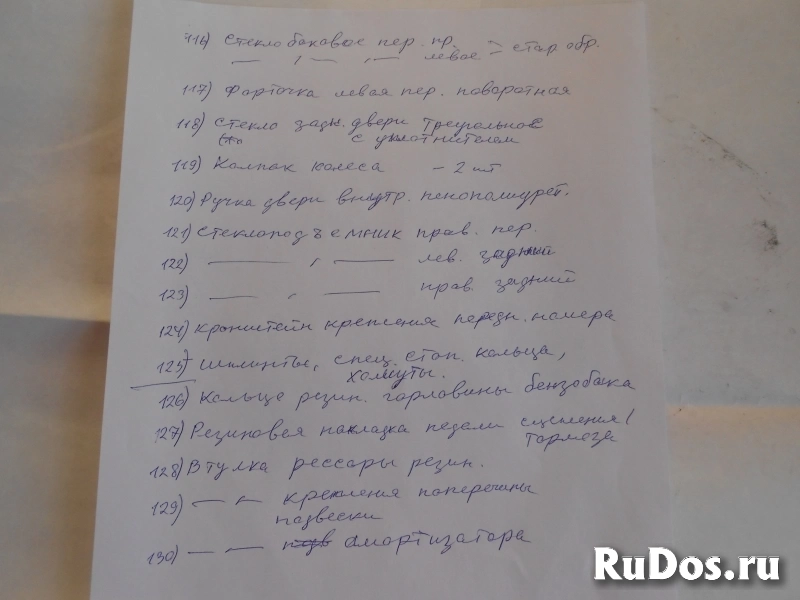 116) Стекло боковое пер. пр.
— , — , — левое = стар обр.
117) Форточка левая пер. поворотная
118) Стекло задн. двери треугольное
с уплотнителем
119) Колпак колеса - 2 шт
120) Ручка двери внутр. пенополиурет.
121) Стеклоподъемник прав. пер.
122) — , — лев. задний
123) — , — прав. задний
124) Кронштейн крепления передн. номера
125) Шплинты, спец. стоп. кольца,
хомуты.
126) Кольцо резин. горловины бензобака
127) Резиновая накладка педали сцепления/
тормоза
128) Втулка рессоры резин.
129) — " — крепления поперечины
подвески
130) — " — амортизатора
RuDos.ru